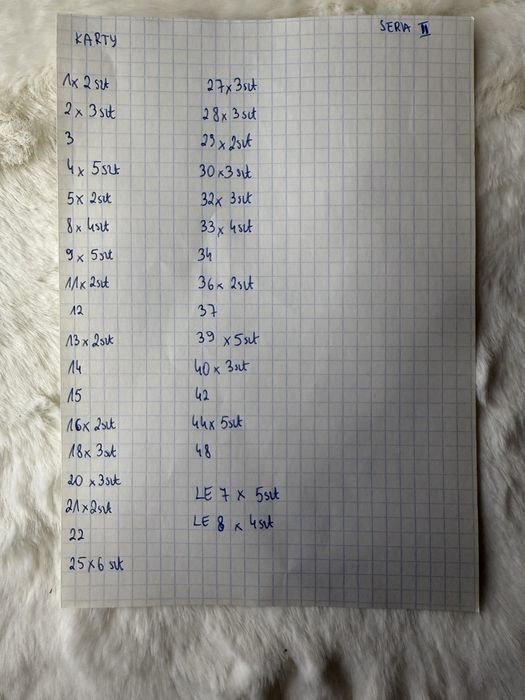 KARTY
SERIA II
1 x 2 szt
2 x 3 szt
3
4 x 5 szt
5 x 2 szt
8 x 4 szt
9 x 5 szt
11 x 2 szt
12
13 x 2 szt
14
15
16 x 2 szt
18 x 3 szt
20 x 3 szt
21 x 2 szt
22
25 x 6 szt
27 x 3 szt
28 x 3 szt
29 x 2 szt
30 x 3 szt
32 x 3 szt
33 x 4 szt
34
36 x 2 szt
37
39 x 5 szt
40 x 3 szt
42
44 x 5 szt
48
LE 7 x 5 szt
LE 8 x 4 szt